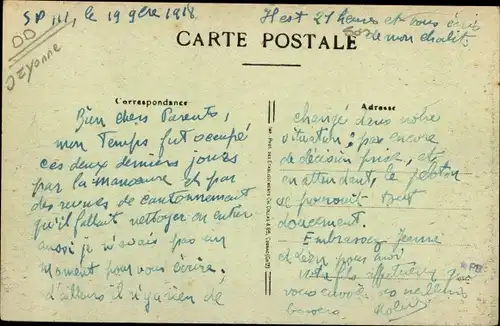 SP 111, le 19 9bre 1918
Il est 21 heures et vous écris
de mon chalit
DD
Oyonne
CARTE POSTALE
Correspondance
Adresse
Bien chers Parents,
mon Temps fut occupé
ces deux derniers jours
par la manœuvre et par
des revues de cantonnement
qu'il fallait nettoyer en entier
aussi je n'avais pas un
moment pour vous écrire;
d'ailleurs il n'y a rien de
changé dans notre
situation; pas encore
de décision prise, et
en attendant, le peloton
se poursuit tout
doucement.
Embrassez Jeanne
et Léon pour moi
votre fils affectueux qui
vous envoie ses meilleurs
baisers